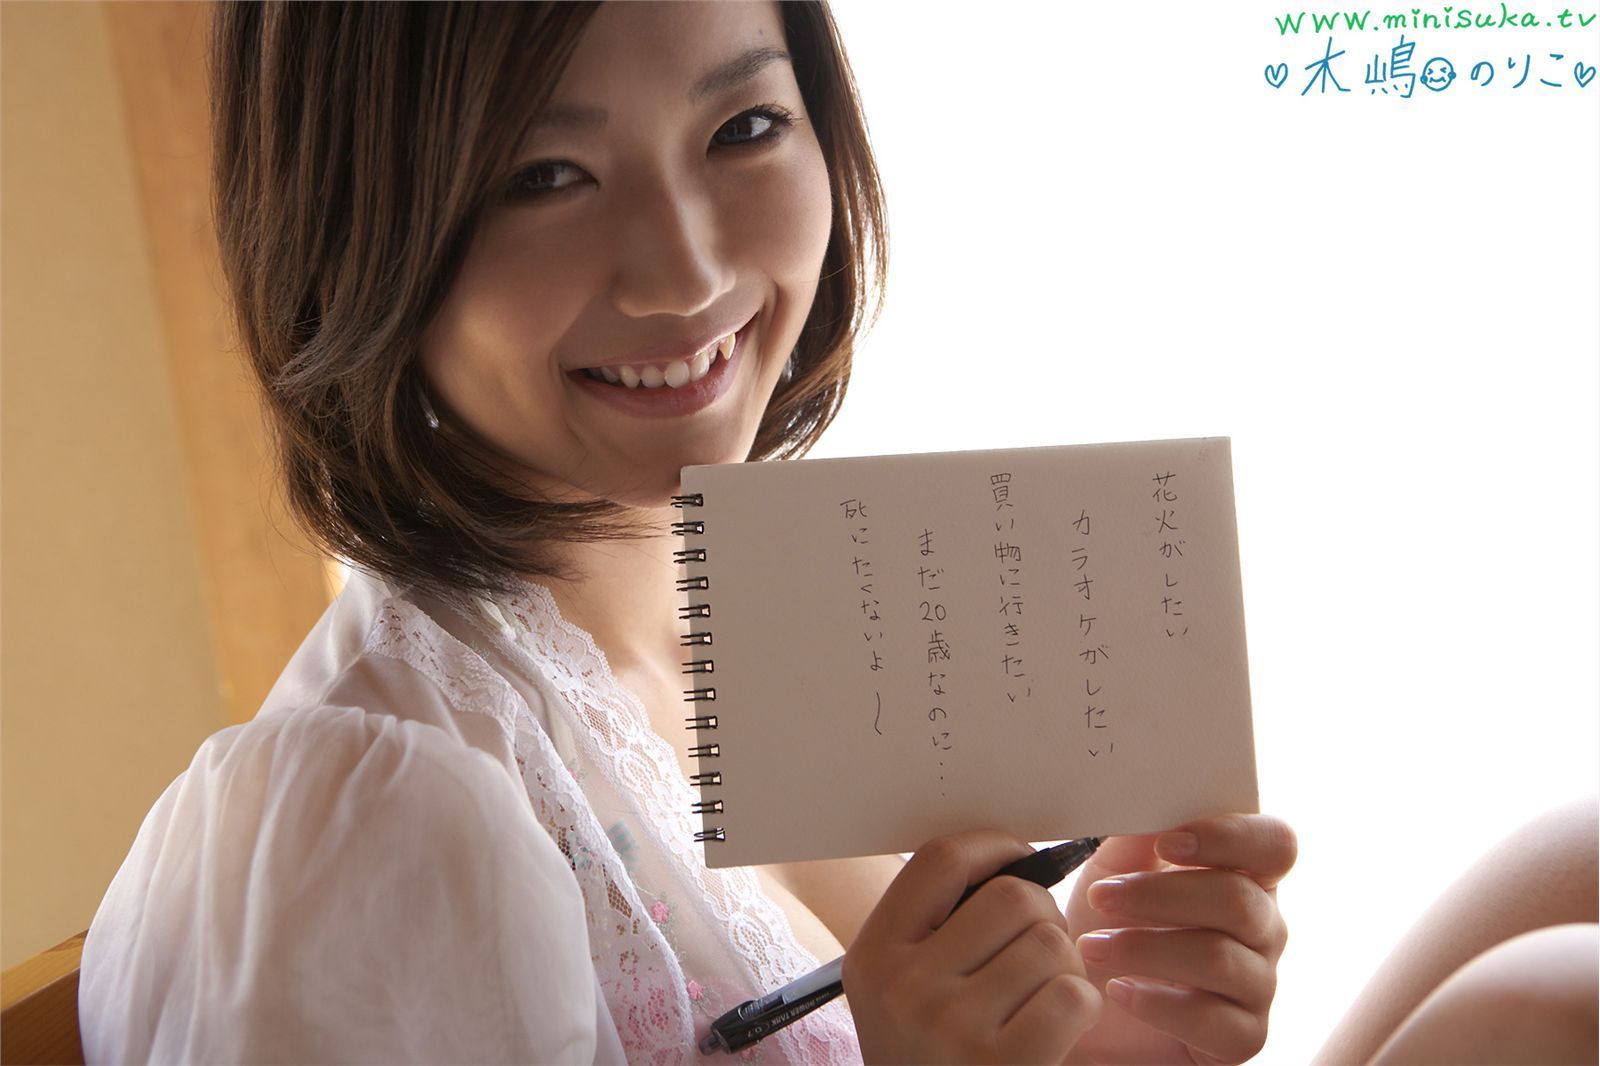 www.minisuka.tv
♡木嶋のりこ♡
花火がしたい
カラオケがしたい
買い物に行きたい
まだ20歳なのに...
死にたくないよ〜
POWER TANK 0.7